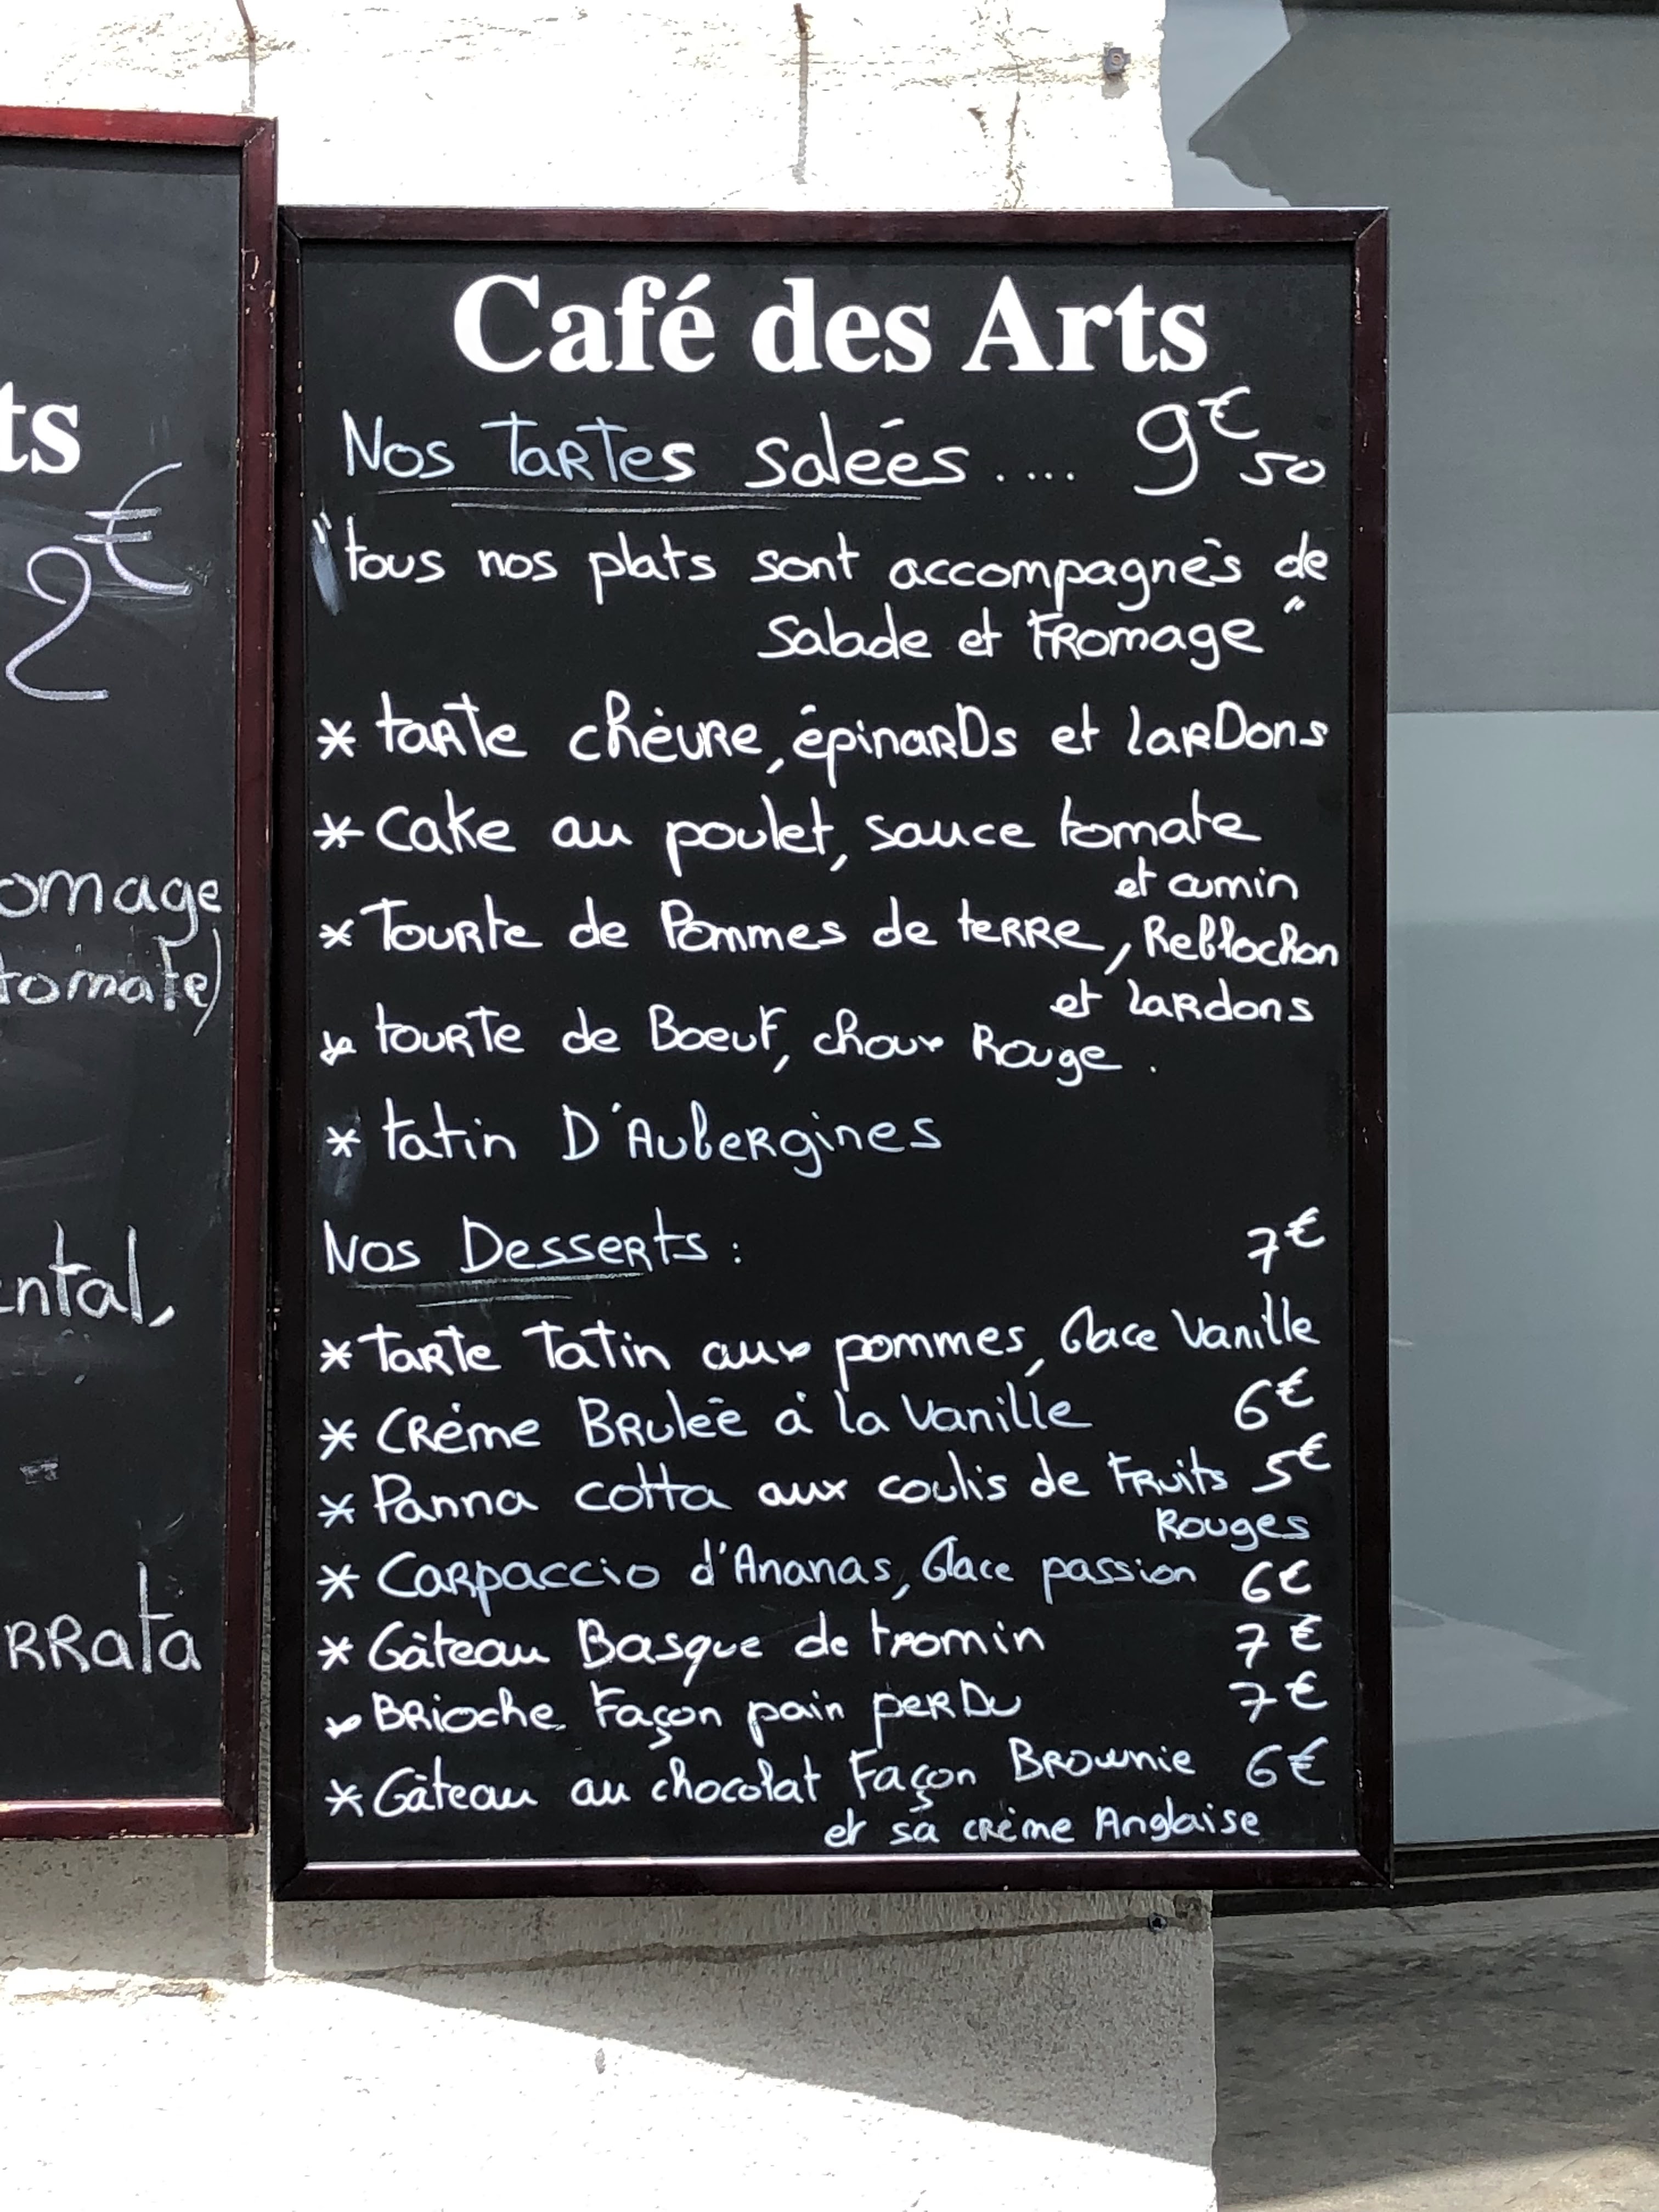 ts
2€
omage
tomate)
ental,
RRata
Café des Arts
Nos Tartes salées .... 9€50
"tous nos plats sont accompagnés de
Salade et Fromage"
* tarte chèvre, épinards et lardons
* Cake au poulet, sauce tomate
et cumin
* Tourte de Pommes de terre, Reblochon
et lardons
* tourte de Boeuf, choux Rouge.
* tatin D'Aubergines
Nos Desserts : 7€
* Tarte Tatin aux pommes, Glace Vanille
* Crème Brulée à la Vanille 6€
* Panna cotta aux coulis de Fruits 5€
Rouges
* Carpaccio d'Ananas, Glace passion 6€
* Gâteau Basque de tromin 7€
* Brioche Façon pain perdu 7€
* Gâteau au chocolat Façon Brownie 6€
et sa crème Anglaise